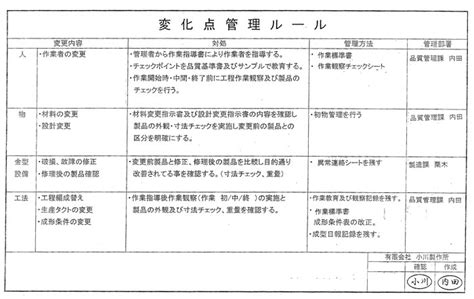 変化点管理ルール
変更内容 対処 管理方法 管理部署
人 ・作業者の変更 ・管理者から作業指導書により作業者を指導する。 ・作業標準書 品質管理課 内田
・チェックポイントを品質基準書及びサンプルで教育する。 ・作業観察チェックシート
・作業開始時・中間・終了前に工程作業観察及び製品の
チェックを行う。
物 ・材料の変更 ・材料変更指示書及び設計変更指示書の内容を確認し ・初物管理を行う 品質管理課 内田
・設計変更 製品の外観・寸法チェックを実施し変更前の製品との
区分を明確にする。
金型 ・破損、故障の修正 ・変更前製品と修正、修理後の製品を比較し目的通り ・異常連絡シートを残す 製造課 栗木
設備 ・修理後の製品確認 改善されてる事を確認する。(寸法チェック、重量)
工法 ・工程編成替え ・作業指導後作業観察(作業 初/中/終 )の実施と ・作業教育及び観察記録を残す。 品質管理課 内田
・生産タクトの変更 製品の外観及び寸法チェック、重量を確認する。 ・作業標準書
・成形条件の変更 成形条件表の改正。
・成型日報記録を残す。
有限会社 小川製作所
確認 作成
小川 内田